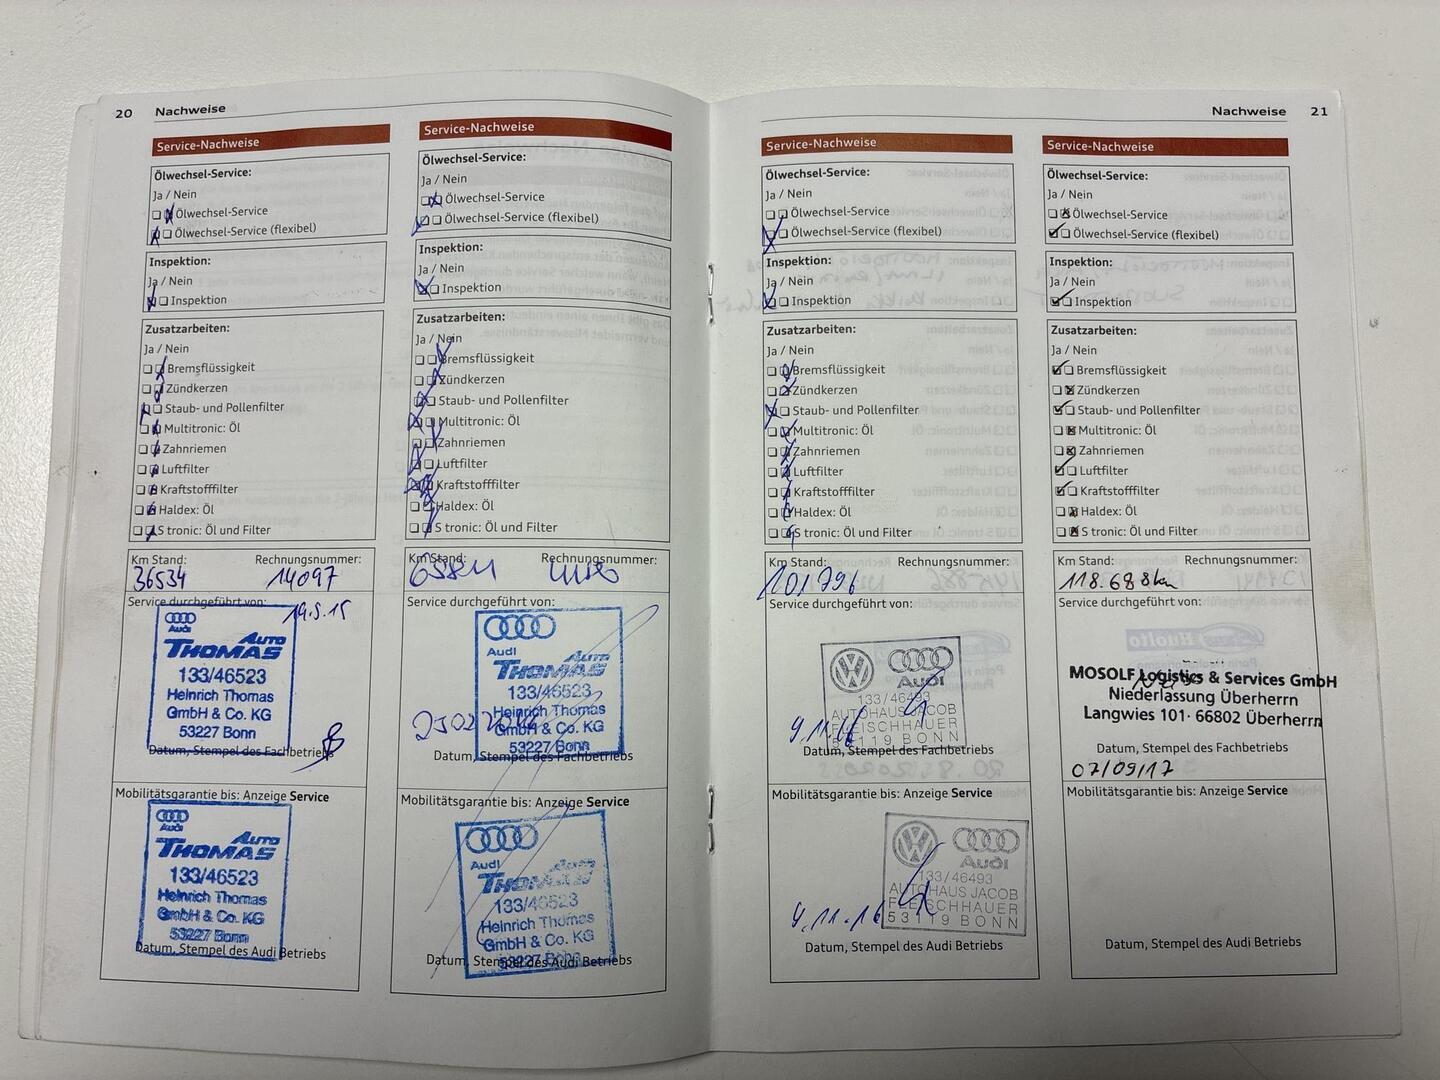 20 Nachweise
Service-Nachweise
Ölwechsel-Service:
Ja / Nein
Ölwechsel-Service
Ölwechsel-Service (flexibel)
Inspektion:
Ja / Nein
Inspektion
Zusatzarbeiten:
Ja / Nein
Bremsflüssigkeit
Zündkerzen
Staub- und Pollenfilter
Multitronic: Öl
Zahnriemen
Luftfilter
Kraftstofffilter
Haldex: Öl
S tronic: Öl und Filter
Km Stand: Rechnungsnummer:
36534 14097
Service durchgeführt von:
19.5.15
Audi
AUTO
THOMAS
133/46523
Heinrich Thomas
GmbH & Co. KG
53227 Bonn
Datum, Stempel des Fachbetriebs
Mobilitätsgarantie bis: Anzeige Service
Audi
AUTO
THOMAS
133/46523
Heinrich Thomas
GmbH & Co. KG
53227 Bonn
Datum, Stempel des Audi Betriebs
Service-Nachweise
Ölwechsel-Service:
Ja / Nein
Ölwechsel-Service
Ölwechsel-Service (flexibel)
Inspektion:
Ja / Nein
Inspektion
Zusatzarbeiten:
Ja / Nein
Bremsflüssigkeit
Zündkerzen
Staub- und Pollenfilter
Multitronic: Öl
Zahnriemen
Luftfilter
Kraftstofffilter
Haldex: Öl
S tronic: Öl und Filter
Km Stand: Rechnungsnummer:
Service durchgeführt von:
Audi
AUTO
THOMAS
133/46523
Heinrich Thomas
GmbH & Co. KG
53227 Bonn
Datum, Stempel des Fachbetriebs
Mobilitätsgarantie bis: Anzeige Service
Audi
AUTO
THOMAS
133/46523
Heinrich Thomas
GmbH & Co. KG
53227 Bonn
Datum, Stempel des Audi Betriebs
Nachweise 21
Service-Nachweise
Ölwechsel-Service:
Ja / Nein
Ölwechsel-Service
Ölwechsel-Service (flexibel)
Inspektion:
Ja / Nein
Inspektion
Zusatzarbeiten:
Ja / Nein
Bremsflüssigkeit
Zündkerzen
Staub- und Pollenfilter
Multitronic: Öl
Zahnriemen
Luftfilter
Kraftstofffilter
Haldex: Öl
S tronic: Öl und Filter
Km Stand: Rechnungsnummer:
101796
Service durchgeführt von:
Audi
133/46493
AUTOHAUS JACOB
FLEISCHHAUER
53119 BONN
9.11.16
Datum, Stempel des Fachbetriebs
Mobilitätsgarantie bis: Anzeige Service
Audi
133/46493
AUTOHAUS JACOB
FLEISCHHAUER
53119 BONN
9.11.16
Datum, Stempel des Audi Betriebs
Service-Nachweise
Ölwechsel-Service:
Ja / Nein
Ölwechsel-Service
Ölwechsel-Service (flexibel)
Inspektion:
Ja / Nein
Inspektion
Zusatzarbeiten:
Ja / Nein
Bremsflüssigkeit
Zündkerzen
Staub- und Pollenfilter
Multitronic: Öl
Zahnriemen
Luftfilter
Kraftstofffilter
Haldex: Öl
S tronic: Öl und Filter
Km Stand: Rechnungsnummer:
118.688km
Service durchgeführt von:
MOSOLF Logistics & Services GmbH
Niederlassung Überherrn
Langwies 101 · 66802 Überherrn
Datum, Stempel des Fachbetriebs
07/09/17
Mobilitätsgarantie bis: Anzeige Service
Datum, Stempel des Audi Betriebs